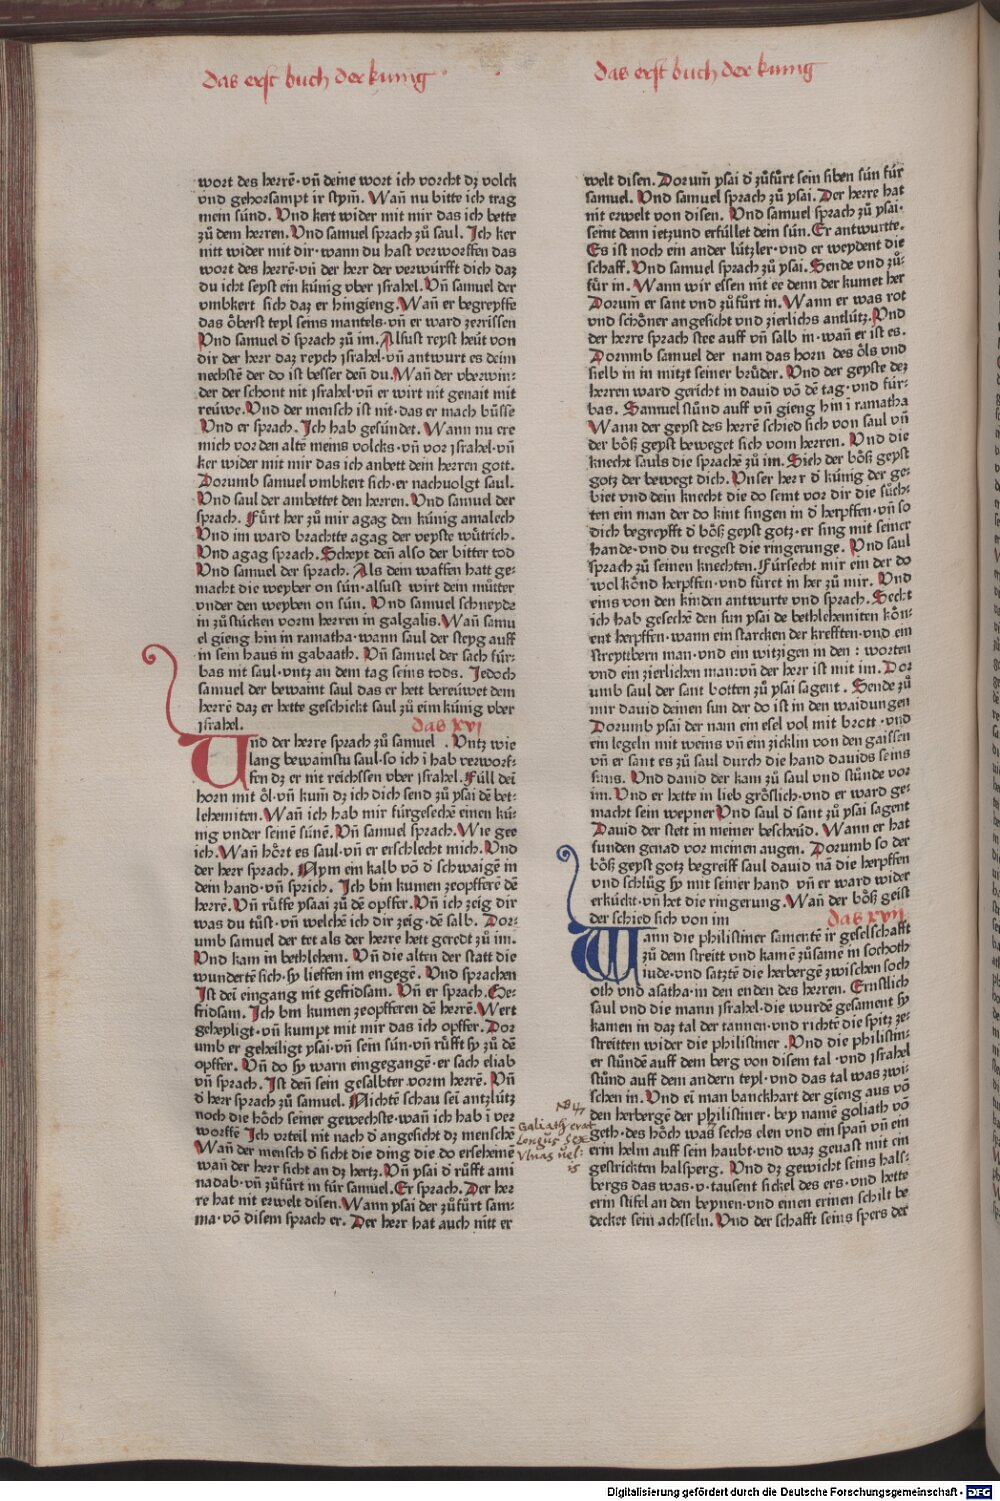 das erst buch der kunig
wort des herrē· vñ deine wort ich vorcht dz volck
vnd gehorsampt ir stym̄. Wañ nu bitte ich trag
mein súnd. Vnd kert wider mit mir das ich bette
zů dem herren. Vnd samuel sprach zů saul. Ich ker
nitt wider mit dir· wann du hast verworffen das
wort des herrē· vñ der herr der verwúrfft dich daz
du icht seyst ein kúnig vber jsrahel. Vñ samuel der
vmbkert sich daz er hingieng. Wañ er begreyffe
das ôberst teyl seins mantels· vñ er ward zerrissen
Vnd samuel d' sprach zů im. Alsust reyst heút von
dir der herr daz reych jsrahel· vñ antwurt es deim
nechstē der do ist besser deñ du. Wañ der vberwin:
der der schont nit jsrahel· vñ er wirt nit genait mit
reúwe. Vnd der mensch ist nit· das er mach bússe
Vnd er sprach. Ich hab gesúndet. Wann nu ere
mich vor den altē meins volcks· vñ vor jsrahel· vñ
ker wider mit mir das ich anbett dein herren gott.
Dorumb samuel vmbkert sich· er nachuolgt saul.
Vnd saul der ambettet den herren. Vnd samuel der
sprach. Fůrt her zů mir agag den kúnig amalech
Vnd im ward brachtte agag der veyste wůtrich.
Vnd agag sprach. Scheyt deñ also der bitter tod
Vnd samuel der sprach. Als dein waffen hatt ge:
macht die weyber on sún· alsust wirt dein můtter
vnder den weyben on sún. Vnd samuel schneyde
in zů stúcken vorm herren in galgalis. Wañ samu
el gieng hin in ramatha· wann saul der steyg auff
in sein haus in gabaath. Vñ samuel der sach fúr:
bas nit saul· vntz an dem tag seins tods. Jedoch
samuel der bewaint saul das er hett bereúwet dem
herrē daz er hette geschickt saul zů eim kúnig vber
jsrahel.
das xvj
Vnd der herre sprach zů samuel. Vntz wie
lang bewainstu saul· so ich ī hab verworf:
fen dz er nit reichssen vber jsrahel. Fúll dei
horn mit ôl· vñ kum̄ dz ich dich send zů ysai dē bet:
lehemiten. Wañ ich hab mir fúrgesechē einen kú:
nig vnder seinē súnē. Vñ samuel sprach. Wie gee
ich. Wañ hôrt es saul· vñ er erschlecht mich. Vnd
der herr sprach. Nym ein kalb vō d' schwaigē in
dein hand· vñ sprich. Ich bin kumen zeopfferē dē
herrē. Vñ růffe ysaai zů dē opffer. Vñ ich zeig dir
was du tůst· vñ welchē ich dir zeig· dē salb. Dor:
umb samuel der tet als der herre hett geredt zů im.
Vnd kam in bethlehem. Vñ die alten der statt die
wundertē sich· sy lieffen im engegē. Vnd sprachen
Ist dei eingang nit gefridsam. Vñ er sprach. Ge:
fridsam. Ich bin kumen zeopfferen dē herrē. Wert
geheyligt· vñ kumpt mit mir das ich opffer. Dor
umb er geheiligt ysai· vñ sein sún· vñ růfft sy zů dē
opffer. Vñ do sy warn eingegangē· er sach eliab
vñ sprach. Ist deñ sein gesalbter vorm herrē. Vñ
d' herr sprach zů samuel. Nichtē schau sei antzlútz
noch die hôch seiner gewechste· wañ ich hab ī ver
worffē Ich vrteil nit nach d' angesicht dz menschē
Wañ der mensch d' sicht die ding die do erscheinē
wañ der herr sicht an dz hertz. Vñ ysai d' růfft ami
nadab· vñ zůfůrt in fúr samuel. Er sprach. Der her
re hat nit erwelt disen. Wann ysai der zůfůrt sam:
ma· vō disem sprach er. Der herr hat auch nitt er
das erst buch der kunig
welt disen. Dorum̄ ysai d' zůfůrt sein siben sún fúr
samuel. Vnd samuel sprach zů ysai. Der herre hat
nit erwelt von disen. Vnd samuel sprach zů ysai·
seint denn ietzund erfúllet dein sún. Er antwurtte.
Es ist noch ein ander lútzler· vnd er weydent die
schaff. Vnd samuel sprach zů ysai. Sende vnd zů:
fůr in. Wann wir essen nit ee denn der kumet her
Dorum̄ er sant vnd zůfůrt in. Wann er was rot
vnd schôner angesicht vnd zierlichs antlútz. Vnd
der herre sprach stee auff vñ salb in· wañ er ist es.
Dorumb samuel der nam das horn des ôls vnd
sielb in in mitzt seiner brúder. Vnd der geyste dez
herren ward gericht in dauid vō dē tag· vnd fúr:
bas. Samuel stůnd auff vñ gieng hin ī ramatha
Wann der geyst des herrē schied sich von saul vñ
der bôß geyst beweget sich vom herren. Vnd die
knecht sauls die sprachē zů im. Sich der bôß geyst
gotz der bewegt dich. Vnser herr d' kúnig der ge:
biet vnd dein knecht die do seint vor dir die sůch:
ten ein man der do kint singen in d' herpffen· vñ so
dich begreyfft d' bôß geyst gotz· er sing mit seiner
hande· vnd du tregest die ringerunge. Vnd saul
sprach zů seinen knechten. Fúrsecht mir ein der do
wol kônd herpffen· vnd fůret in her zů mir. Vnd
eins von den kinden antwurte vnd sprach. Secht
ich hab gesechē den sun ysai de bethlehemiten kôn:
ent herpffen· wann ein starcken der krefften· vnd ein
streyttbern man· vnd ein witzigen in den : worten
vnd ein zierlichen man: vñ der herr ist mit im. Dor
umb saul der sant botten zů ysai sagent. Sende zů
mir dauid deinen sun der do ist in den waidungen
Dorumb ysai der nam ein esel vol mit brott· vnd
ein legeln mit weins vñ ein zicklin von den gaissen
vñ er sant es zů saul durch die hand dauids seins
suns. Vnd dauid der kam zů saul vnd stůnde vor
im. Vnd er hette in lieb grôslich· vnd er ward ge:
macht sein wepner Vnd saul d' sant zů ysai sagent
Dauid der stett in meiner bescheúd. Wann er hat
funden genad vor meinen augen. Dorumb so der
bôß geyst gotz begreiff saul dauid nā die herpffen
vnd schlůg sy mit seiner hand vñ er ward wider
erkúckt· vñ het die ringerung. Wañ der bôß geist
der schied sich von im
das xvij
Wann die philistiner samentē ir geselschafft
zů dem streitt vnd kamē zůsamē in sochoth
iude· vnd satztē die herbergē zwischen soch
oth vnd asatha· in den enden des herren. Ernstlich
saul vnd die mann jsrahel· die wurdē gesament sy
kamen in daz tal der tannen· vnd richtē die spitz ze:
streitten wider die philistiner. Vnd die philistin:
er stůndē auff dem berg von disem tal· vnd jsrahel
stůnd auff dem andern teyl· vnd das tal was zwi
schen in. Vnd ei man banckhart der gieng aus vō
den herbergē der philistiner· bey namē goliath vō
geth· des hôch was sechs elen vnd ein span vñ ein
erin helm auff sein haubt· vnd waz geuast mit eim
gestrickten halsperg. Vnd dz gewicht seins hals:
bergs das was· v· tausent sickel des ers· vnd hette
erin stifel an den beynen· vnd einen erinen schilt be
decket sein achsseln. Vnd der schafft seins spers der
Galiath erat
Longus sex
Vlnas uel:
Digitalisierung gefördert durch die Deutsche Forschungsgemeinschaft - DFG